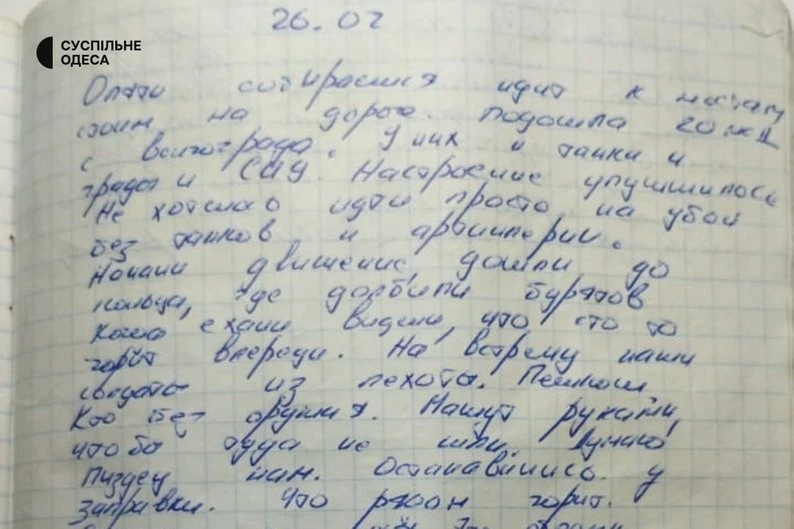 26.02
СУСПІЛЬНЕ
ОДЕСА
Опять собираемся идти к
стоим на дороге. подошла 20 мсд
с волгограда. У них и танки и
грады и САУ. Настроение улучшилось
Не хотелось идти просто на убой
без танков и артиллерии.
Начали движение, дошли до
кольца, где долбили бурятов
Когда ехали видели, что что то
горит впереди. На встречу наши
солдаты из пехоты. Пешком
Кто без оружия. Машут руками,
чтобы туда не шли. Думаю
пиздец нам. Остановились у
заправки. Что рядом горит.